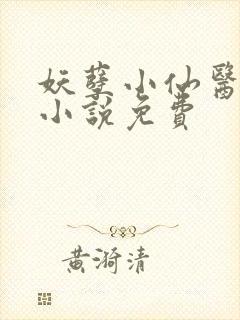 妖孽小仙醫
小說免費
黃漪清